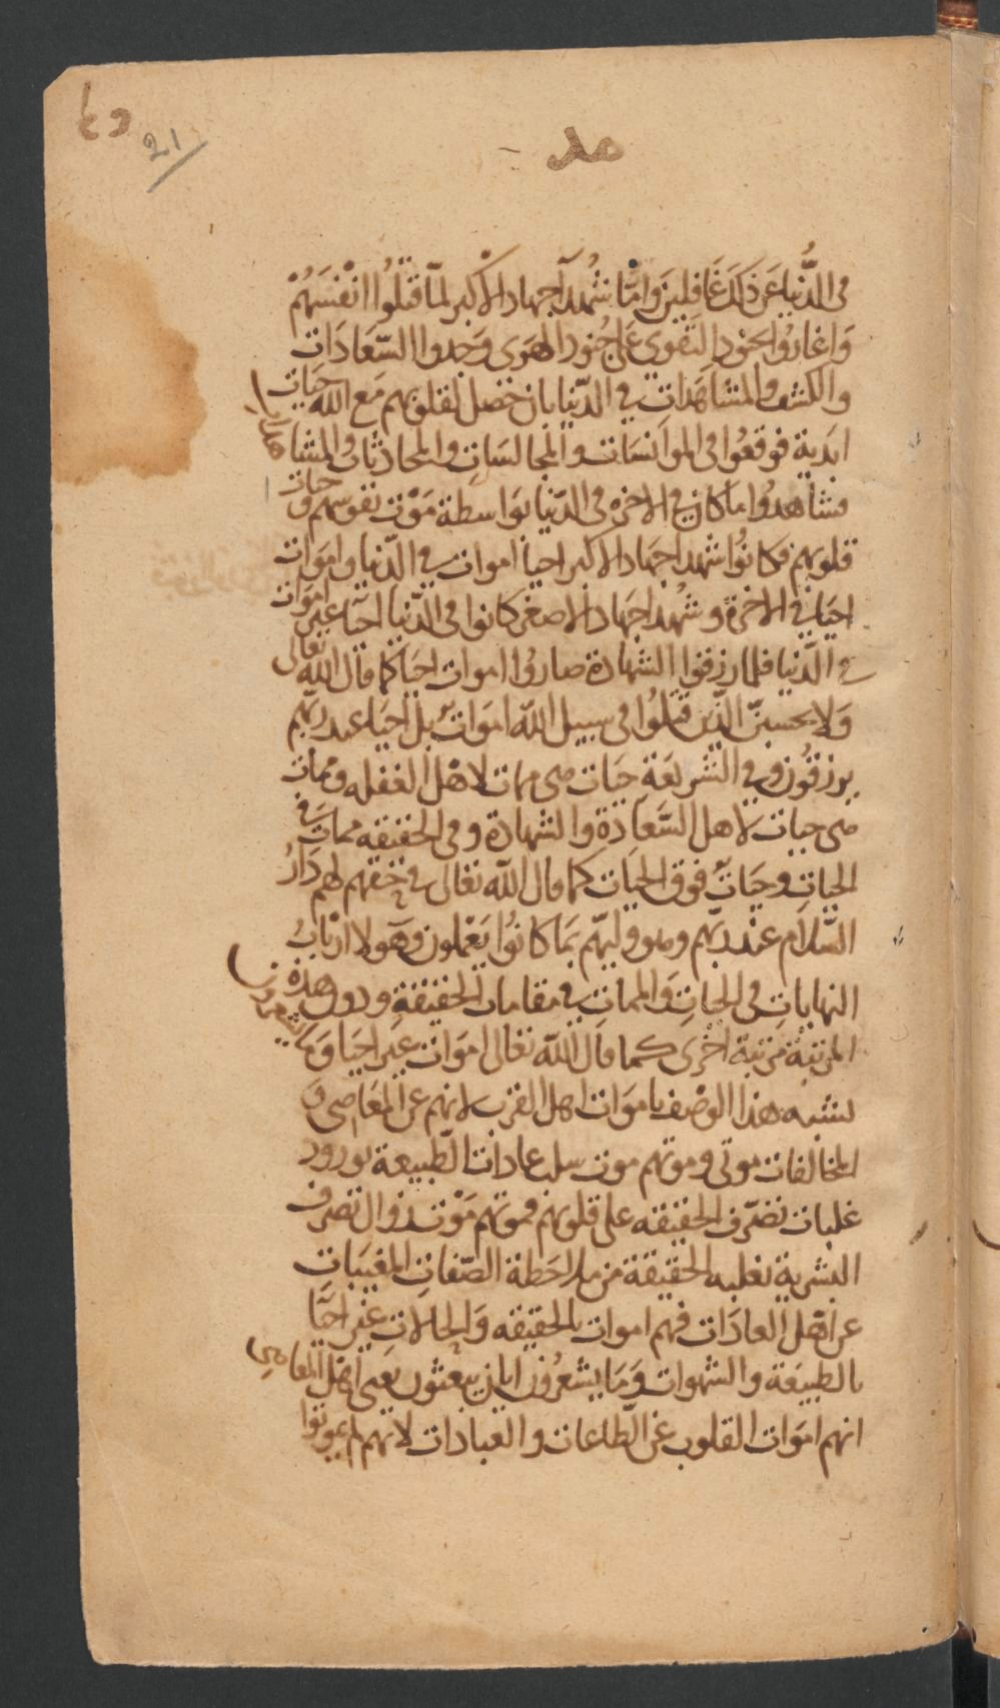 21
فى الدُّنيا عَن ذَلكَ غَافِلِينَ وَامَّا شُهَدآ جهاد الاكبر لمآ قتَلُوا انْفُسَهُمْ
وَاغاروُا بجنود التقوى عَلى جُنُود الهوَى وَجدوا السّعَادَات
والكشف والمشاهَدات فى الدّنيا بان حصل لقلوبهم مَع الله حيَات
ابَدية فوقعُوا فى الموَانسَات والمجالسَات والمحادثات والمشاهدات
فشاهدُوا ما كان فى الاخرة فى الدّنيا بوَاسطة مَوْت نفوسهم وحيات
قلوبهم فكانُوا شهدا جهاد الاكبر احيا اموات فى الدّنيا وامَوات
احيَا فى الاخرة وشهدا جهاد الاصغر كانوا فى الدّنيا احيآ غير امَوات
فى الدّنيا فلما رزقوا الشهادة صارُوا اموات احيَا كما قال الله تعالى
وَلا يحسبنّ الذين قتلُوا فى سبيل الله امَواتٌ بل احيَا عند ربّهم
يرزقُون وفى الشريعَة حيَات هى ممات لاهل الغفله وممات
هى حيات لاهل السَّعَادة والشهادة وفى الحقيقه ممات فى
الحيات وحيَاتٌ فوق الحيَات كما قال الله تعالى فى حقهم لهم دَارُ
السَّلام عند ربّهم وهو وليهّم بمَا كانُوا يَعْملون وهَولا ارْبابُ
النهايات فى الحيات وَالممات فى مقامات الحقيقة ودون هذه
المرتبة مرتبة اخْرى كما قال الله تعالى امَوات غير احيَا وَما يشعرون
يشبه هذا الوصْف بامَوات اهل القرب لانهم عن المعَاصى وَ
المخالفات موتى وموتهم موت سلب عادات الطّبيعة بورود
غلبات تصَرّف الحقيقه على قلوبهم فموتهم مَوْت زوال تصَرف
البشرية بغلبه الحقيقة من ملاحَظة الصّفات المغيبَات
عن اهل العادَات فهم اموات بالحقيقه وَالحالات غير احيَّا
بالطبيعَة والشهوات وَمَا يشعُرُون ايان يبعثون يعنى اهل المعاصى
انهم امَوات القلوب عَن الطّاعات والعبادات لانهم لم يموتوا